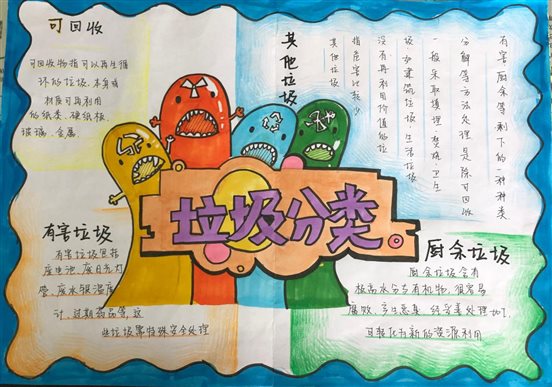 可回收
可回收物指可以再生循
环的垃圾、本身或
材质可再利用
的纸类、硬纸板、
玻璃、金属
其他垃圾
有害厨余等剩下的一种种类
分解等方法处理是除可回收
一般采取填埋、焚烧、卫生
圾如建筑垃圾、生活垃圾
没有再利用价值的垃
指危害比较少
其他垃圾
垃圾分类
有害垃圾
有害垃圾包括
废电池、废日光灯
管、废水银温度
计、过期药品等,这
些垃圾需特殊安全处理
厨余垃圾
厨余垃圾含有
极高水分与有机物,很容易
腐败、产生恶臭、经妥善处理加工
可转化为新的资源利用